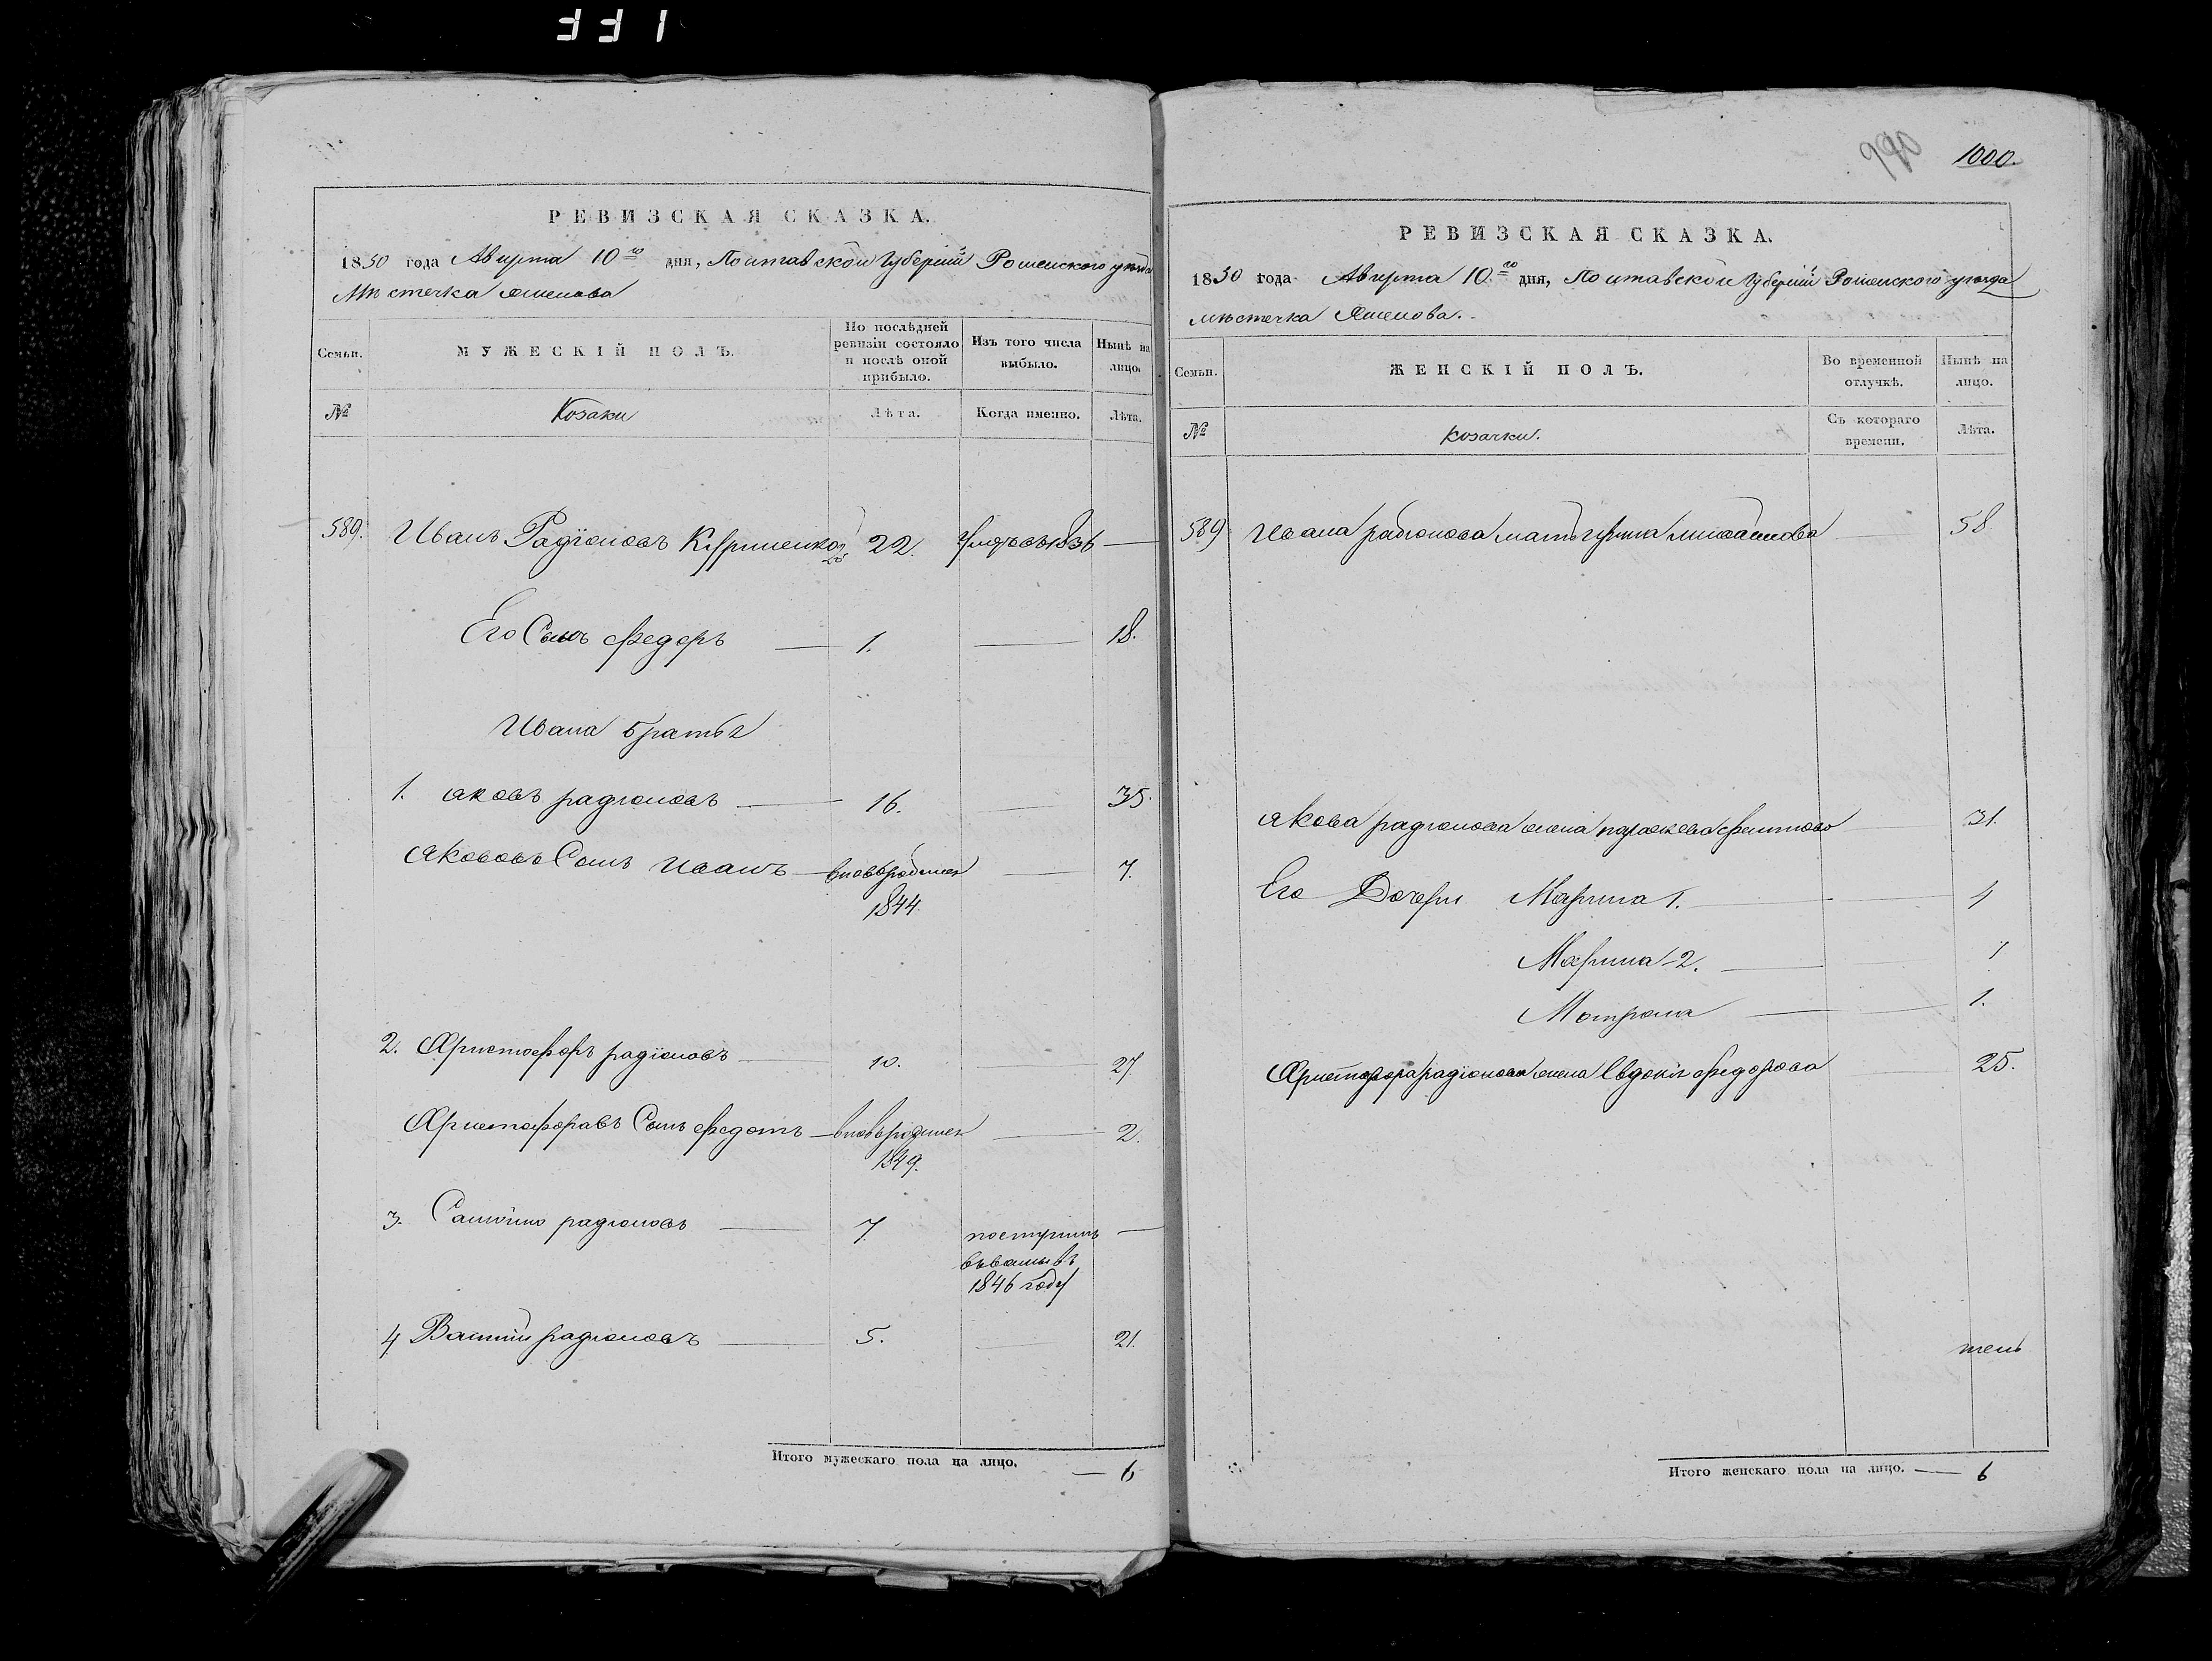 1000.
990
РЕВИЗСКАЯ СКАЗКА.
1850 года Августа 10го дня, Полтавской Губернїи Роменского уезда
Мѣстечка Смелова
Семьи.
МУЖЕСКІЙ ПОЛЪ.
По послѣдней ревизіи состояло и послѣ оной прибыло.
Изъ того числа выбыло.
Нынѣ на лицо.
№
Козаки
Лѣта.
Когда именно.
Лѣта.
589. Иванъ Радїоновъ 22. 1836 —
Его Сынъ Федоръ — 1. — 18.
Ивана братья
1. Яковъ радїоновъ — 16. 35.
Яковавъ Сынъ Иванъ — вновьрожден — 7.
1844.
2. Христофоръ радїоновъ — 10. 27
Христофоравъ Сынъ Федотъ — вновьрожден — 2.
1849.
3. Самойло радїоновъ — 7. поступилъ —
1846 году
4 Василїй радїоновъ — 5. 21.
Итого мужескаго пола на лицо. — 6
РЕВИЗСКАЯ СКАЗКА.
1850 года Августа 10го дня, Полтавской Губернїи Роменского уезда
мѣстечка Смелова.
Семьи.
ЖЕНСКІЙ ПОЛЪ.
Во временной отлучкѣ.
Нынѣ на лицо.
№
козачки.
Съ котораго времени.
Лѣта.
589 Ивана радїонова мать Ирина михайлова 58
Якова радїонова жена параскева 31.
Его Дочери Марина 1. — 4
Марина 2. —
Мотрона — 1.
Христофора радїонова жена Евдокїя Федорова 25.
Итого женскаго пола на лицо. — 6